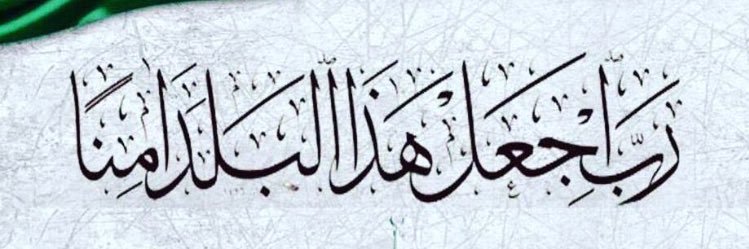 رَبِّ اجْعَلْ هَذَا الْبَلَدَ امِنًا